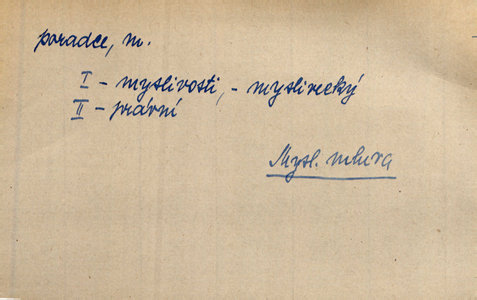 poradce, m.
I – myslivosti, – myslivecký
II – právní
Mysl. mluva